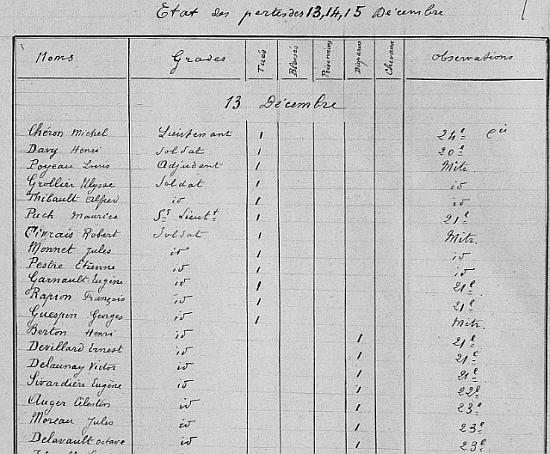 Etat des pertes des 13, 14, 15 Décembre
Noms Grades Tués Blessés Prisonniers Disparus Chevaux Observations
13 Décembre
Chéron Michel Lieutenant 1 24e Cie
Davy Henri Soldat 1 20e
Poyeau Louis Adjudant 1 Mitr.
Grollier Ulysse Soldat 1 id
Thibault Alfred id 1 id
Puch Maurice Ss Lieutt 1 21e
Robert Soldat 1 Mitr.
Monnet Jules id 1 id
Pestre Etienne id 1 id
Garnault Eugène id 1 21e
Rapion François id 1 21e
Guespin Georges id 1 Mitr.
Berton Henri id 1 21e
Devillard Ernest id 1 21e
Delaunay Victor id 1 21e
Sivardière Eugène id 1 22e
Auger Célestin id 1 23e
Moreau Jules id 1 23e
Delavault Octave id 1 23e